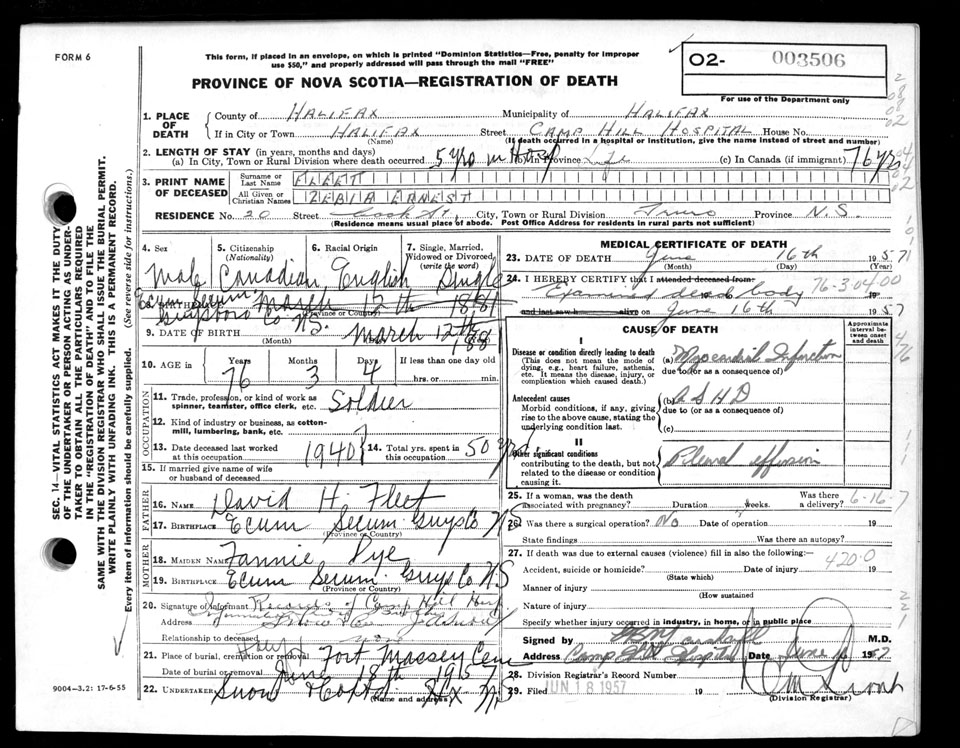 FORM 6
This form, if placed in an envelope, on which is printed "Dominion Statistics—Free, penalty for improper
use $50," and properly addressed will pass through the mail "FREE"
PROVINCE OF NOVA SCOTIA—REGISTRATION OF DEATH
O2- 003506
For use of the Department only
SEC. 14—VITAL STATISTICS ACT MAKES IT THE DUTY
OF THE UNDERTAKER OR PERSON ACTING AS UNDER-
TAKER TO OBTAIN ALL THE PARTICULARS REQUIRED
IN THE "REGISTRATION OF DEATH" AND TO FILE THE
SAME WITH THE DIVISION REGISTRAR WHO SHALL ISSUE THE BURIAL PERMIT.
WRITE PLAINLY WITH UNFADING INK. THIS IS A PERMANENT RECORD.
Every item of information should be carefully supplied. (See reverse side for instructions.)
1. PLACE OF DEATH
County of HALIFAX Municipality of HALIFAX
If in City or Town HALIFAX Street CAMP HILL HOSPITAL House No.
(Name) (If death occurred in a hospital or institution, give the name instead of street and number)
2. LENGTH OF STAY (in years, months and days)
(a) In City, Town or Rural Division where death occurred 5 yrs in Hosp Province Life (c) In Canada (if immigrant) 76 yrs
3. PRINT NAME OF DECEASED
Surname or Last Name FLEET
All Given or Christian Names ZEBIA ERNEST
RESIDENCE No. 20 Street City, Town or Rural Division Truro Province N.S.
(Residence means usual place of abode. Post Office Address for residents in rural parts not sufficient)
4. Sex 5. Citizenship (Nationality) 6. Racial Origin 7. Single, Married, Widowed or Divorced (write the word)
Male Canadian English Single
Ecum Secum March 12th 1881
Guysboro Co NS. (Province or Country)
9. DATE OF BIRTH March 12th 1881
(Month)
10. AGE in Years 76 Months 3 Days 4 If less than one day old hrs. or min.
OCCUPATION
11. Trade, profession, or kind of work as spinner, teamster, office clerk, etc. Soldier
12. Kind of industry or business, as cotton-mill, lumbering, bank, etc.
13. Date deceased last worked at this occupation 1940 14. Total yrs. spent in this occupation 50 yrs
15. If married give name of wife or husband of deceased
FATHER
16. NAME David H. Fleet
17. BIRTHPLACE Ecum Secum Guys Co NS
(Province or Country)
MOTHER
18. MAIDEN NAME Fannie Pye
19. BIRTHPLACE Ecum Secum Guys Co. N.S
(Province or Country)
20. Signature of Informant Records of Camp Hill Hosp
Address
Relationship to deceased
21. Place of burial, cremation or removal Fort Massey Cem
Date of burial or removal June 18th 1957
22. UNDERTAKER Snow Hfx NS
(Name and address)
9004—3.2: 17-6-55
MEDICAL CERTIFICATE OF DEATH
23. DATE OF DEATH June 16th 1957
(Month) (Day) (Year)
24. I HEREBY CERTIFY that I attended deceased from:
Examined dead body 76-3-0400 19
and last saw h alive on June 16th 1957
CAUSE OF DEATH
Approximate interval between onset and death
I
Disease or condition directly leading to death (a) Myocardial Infarction
(This does not mean the mode of dying, e.g., heart failure, asthenia, etc. It means the disease, injury, or complication which caused death.)
due to (or as a consequence of)
Antecedent causes (b) A S H D
Morbid conditions, if any, giving rise to the above cause, stating the underlying condition last.
due to (or as a consequence of)
(c)
II
Other significant conditions Pleural effusion
contributing to the death, but not related to the disease or condition causing it.
25. If a woman, was the death associated with pregnancy? Duration weeks. Was there a delivery? 6-16-7
26. Was there a surgical operation? No Date of operation 19
State findings Was there an autopsy?
27. If death was due to external causes (violence) fill in also the following:— 420.0
Accident, suicide or homicide? Date of injury 19
(State which)
Manner of injury
(How sustained
Nature of injury
Specify whether injury occurred in industry, in home, or in public place
Signed by M.D.
Address Camp Hill Hospital Date June 1957
28. Division Registrar's Record Number
29. Filed JUN 18 1957 19
(Division Registrar)